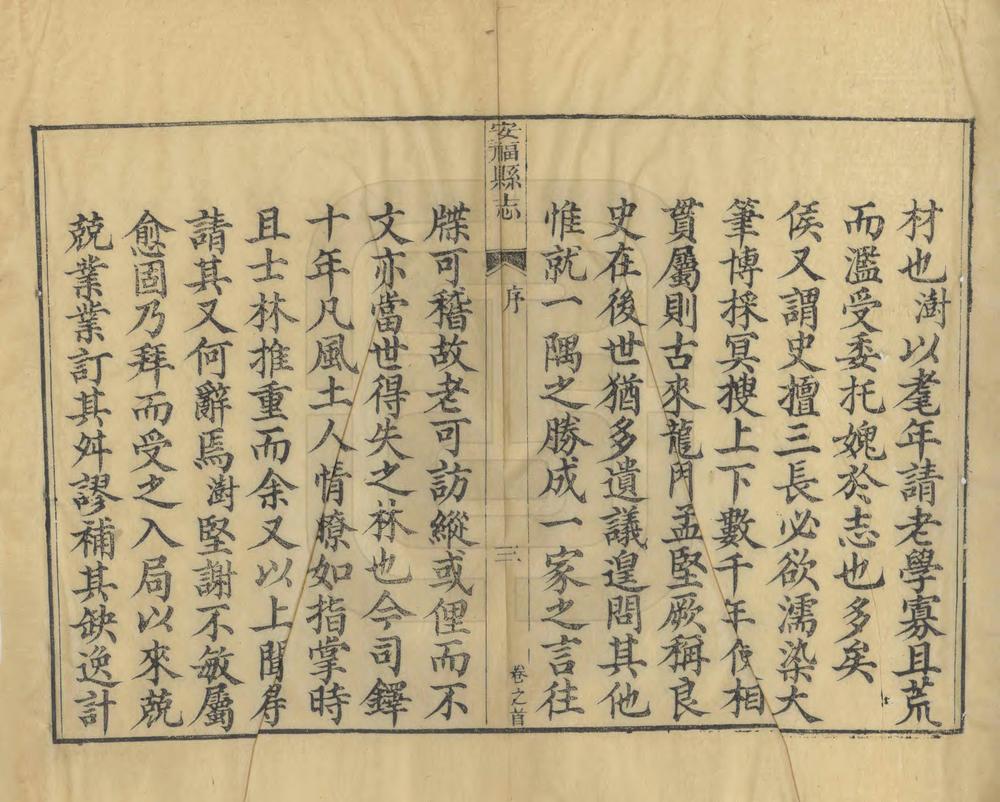 材也澍以耄年請老學寡且荒
而濫受委托媿於志也多矣
侯又謂史擅三長必欲濡染大
筆博採冥搜上下數千年使相
貫屬則古來龍門孟堅厥稱良
史在後世猶多遺議遑問其他
惟就一隅之勝成一家之言往
安福縣志
序
三
卷之首
牒可稽故老可訪縱或俚而不
文亦當世得失之林也今司鐸
十年凡風土人情瞭如指掌時
且士林推重而余又以上聞得
請其又何辭焉澍堅謝不敏屬
愈固乃拜而受之入局以來兢
兢業業訂其舛謬補其缺逸計